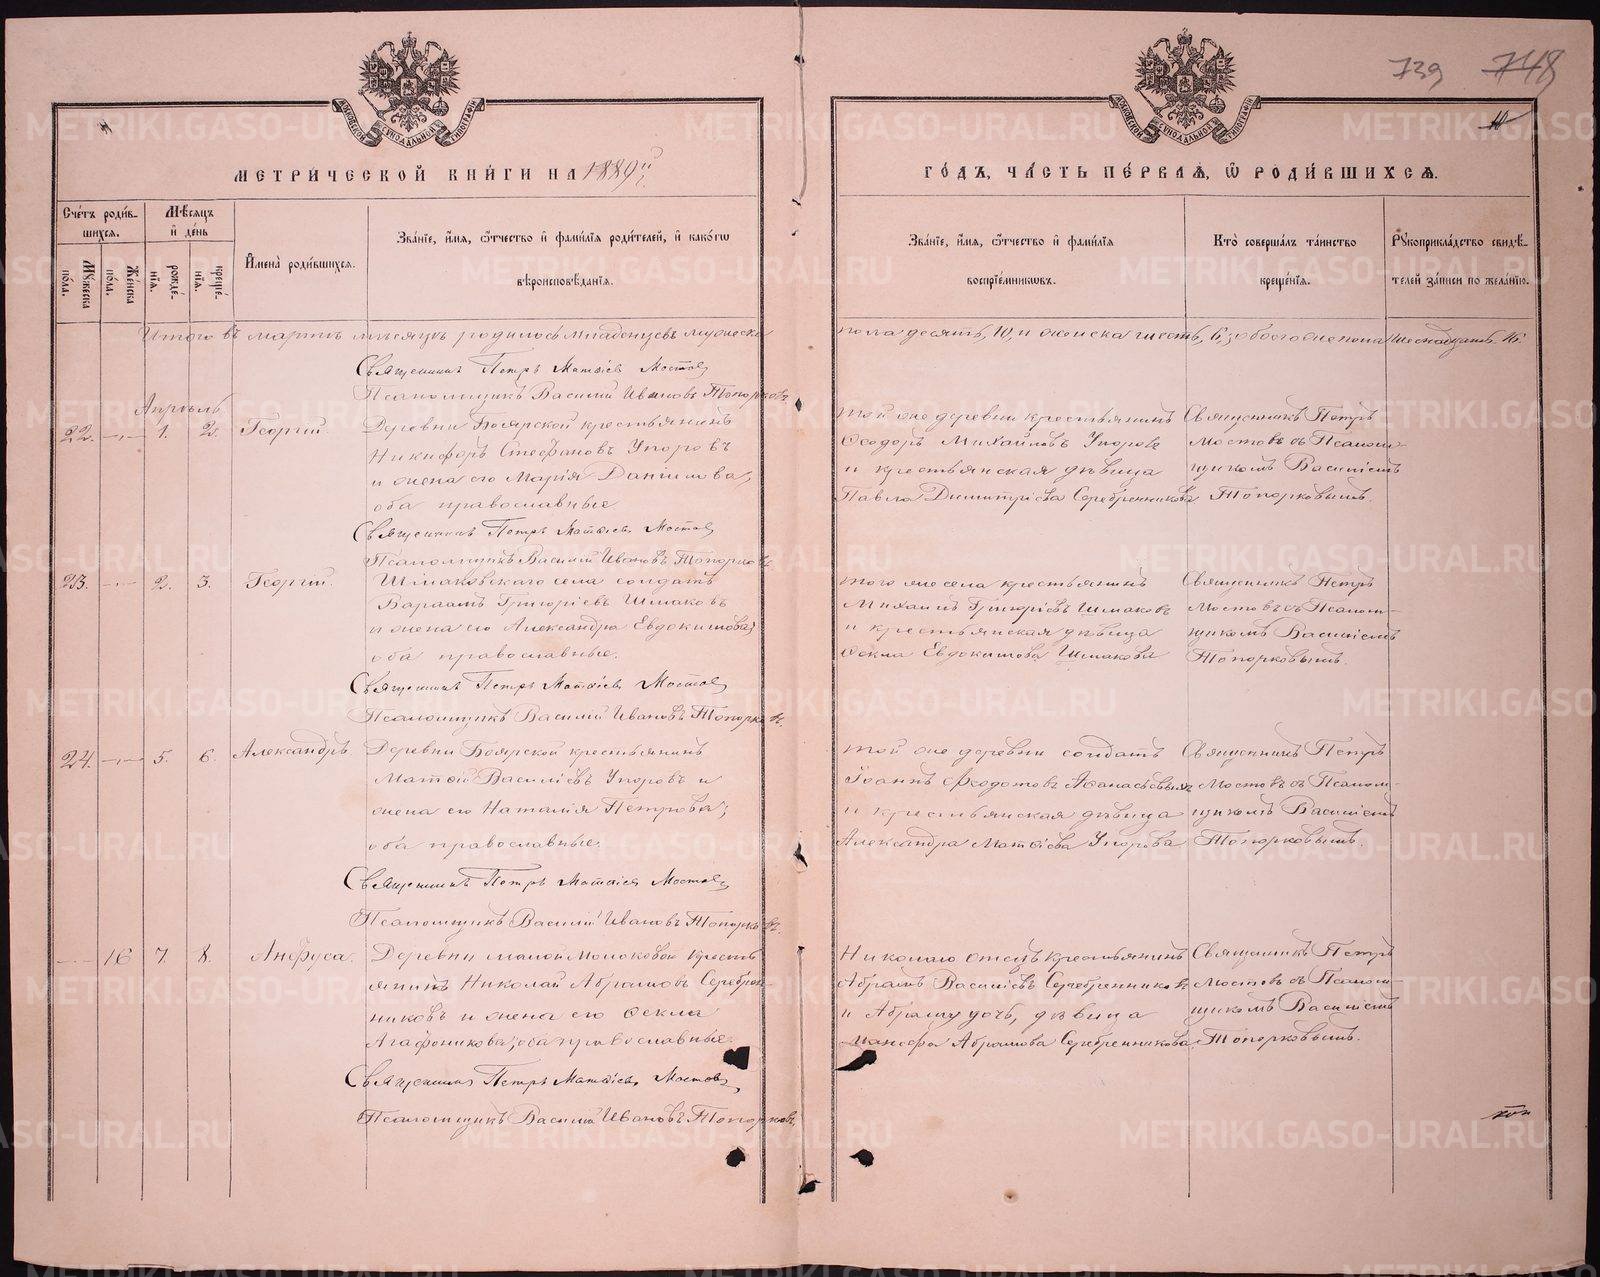 739 748
10
МЕТРИ́ЧЕСКОЙ КНИ́ГИ НА 1889й г.
ГО́ДЪ, ЧА́СТЬ ПЕ́РВАѦ, Ѽ РОДИ́ВШИХСѦ.
Сче́тъ роди́в-
шихсѧ.
Мѣсѧцъ
и҆ де́нь
И҆мена̀ роди́вшихсѧ.
Зва́нїе, и҆́мѧ, ѻ҆́тчество и҆ фами́лїѧ роди́телей, и҆ како́гѡ
вѣроисповѣ́данїѧ.
Зва́нїе, и҆́мѧ, ѻ҆́тчество и҆ фами́лїѧ
воспрїе́мникѡвъ.
Кто̀ соверша́лъ та́инство
креще́нїѧ.
Рꙋкоприкла́дство свидѣ́-
телей за́писи по жела́нїю.
Мꙋ́жеска
по́ла.
Же́нска
по́ла.
рожде́-
нїѧ.
креще́-
нїѧ.
Итого въ мартѣ мѣсяцѣ родилось младенцевъ мужеска
пола десять, 10, и женска шесть, 6; обоего же пола шеснадцать. 16.
Священникъ Петръ Матѳіев Мостов
Псаломщикъ Василій Ивановъ Топорковъ.
Апрѣль
22. 1. 2. Георгій
Деревни Боярской крестьянинъ
Никифоръ Стефановъ Упоровъ
и жена его Марія Даніилова,
оба православные
той же деревни крестьянинъ
Ѳеодоръ Михайловъ Упоровъ
и крестьянская дѣвица
Павла Димитріева Серебренникова
Священникъ Петръ
Мостовъ съ Псалом-
щикомъ Василіемъ
Топорковымъ.
Священникъ Петръ Матѳіев Мостов
Псаломщикъ Василій Ивановъ Топорковъ.
23. 2. 3. Георгій.
Шмаковскаго села солдатъ
Варлаамъ Григоріевъ Шмаковъ
и жена его Александра Евдокимова;
оба православные.
того же села крестьянинъ
Михаилъ Григоріевъ Шмаковъ
и крестьянская дѣвица
Ѳекла Евдокимова Шмакова
Священникъ Петръ
Мостовъ съ Псалом-
щикомъ Василіемъ
Топорковымъ.
Священникъ Петръ Матѳіев Мостов
Псаломщикъ Василій Ивановъ Топорковъ.
24. 5. 6. Александръ.
Деревни Боярской крестьянинъ
Матѳій Василіевъ Упоровъ и
жена его Наталія Петрова;
оба православные.
той же деревни солдатъ
Іоаннъ Ѳеодотовъ Аѳанасьевыхъ
и крестьянская дѣвица
Александра Матѳіева Упорова
Священникъ Петръ
Мостовъ съ Псалом-
щикомъ Василіемъ
Топорковымъ.
Священникъ Петръ Матѳіев Мостов
Псаломщикъ Василій Ивановъ Топорковъ.
16 7. 8. Анфуса.
Деревни малой Молоковой кресть
янинъ Николай Абрамовъ Серебрен-
никовъ и жена его Ѳекла
Агафоникова; оба православные.
Николаю отецъ крестьянинъ
Абрамъ Василіевъ Серебренниковъ
и Абраму дочь, дѣвица
Манефа Абрамова Серебренникова
Священникъ Петръ
Мостовъ съ Псалом-
щикомъ Василіемъ
Топорковымъ.
Священникъ Петръ Матѳіев Мостов
Псаломщикъ Василій Ивановъ Топорковъ.
METRIKI.GASO-URAL.RU